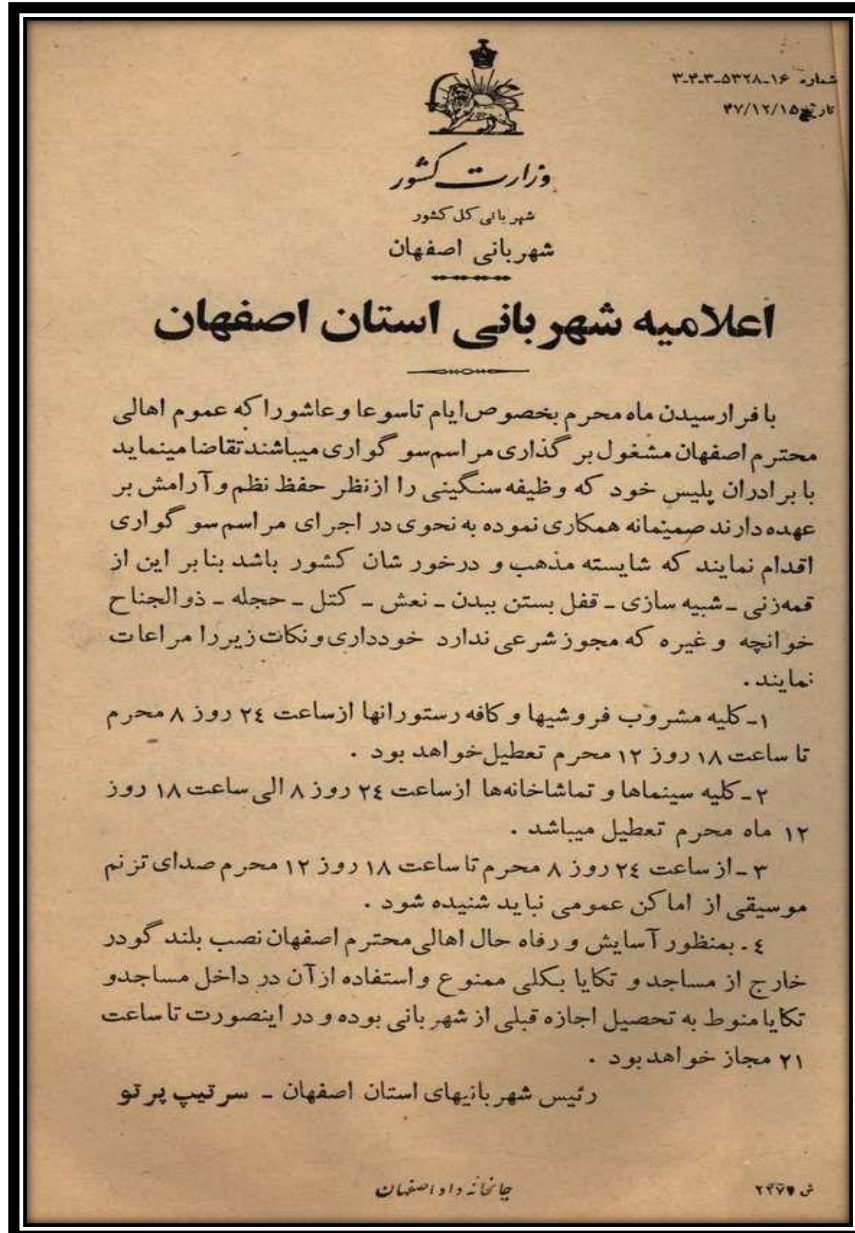 شماره ۱۶-۵۳۲۸-۳-۴-۳
تاریخ ۴۷/۱۲/۱۵
وزارت کشور
شهربانی کل کشور
شهربانی اصفهان
اعلامیه شهربانی استان اصفهان
با فرارسیدن ماه محرم بخصوص ایام تاسوعا و عاشورا که عموم اهالی
محترم اصفهان مشغول برگذاری مراسم سوگواری میباشند تقاضا مینماید
با برادران پلیس خود که وظیفه سنگینی را از نظر حفظ نظم و آرامش بر
عهده دارند صمیمانه همکاری نموده به نحوی در اجرای مراسم سوگواری
اقدام نمایند که شایسته مذهب و درخور شان کشور باشد بنابر این از
قمه‌زنی - شبیه سازی - قفل بستن ببدن - نعش - کتل - حجله - ذوالجناح
خوانچه و غیره که مجوز شرعی ندارد خودداری و نکات زیر را مراعات
نمایند .
۱- کلیه مشروب فروشیها و کافه رستورانها از ساعت ۲۴ روز ۸ محرم
تا ساعت ۱۸ روز ۱۲ محرم تعطیل خواهد بود .
۲- کلیه سینماها و تماشاخانه‌ها از ساعت ۲۴ روز ۸ الی ساعت ۱۸ روز
۱۲ ماه محرم تعطیل میباشد .
۳- از ساعت ۲۴ روز ۸ محرم تا ساعت ۱۸ روز ۱۲ محرم صدای ترنم
موسیقی از اماکن عمومی نباید شنیده شود .
٤- بمنظور آسایش و رفاه حال اهالی محترم اصفهان نصب بلند گو در
خارج از مساجد و تکایا بکلی ممنوع و استفاده از آن در داخل مساجد و
تکایا منوط به تحصیل اجازه قبلی از شهربانی بوده و در اینصورت تا ساعت
۲۱ مجاز خواهد بود .
رئیس شهربانیهای استان اصفهان - سرتیپ پرتو
چاپخانه داد اصفهان
ش